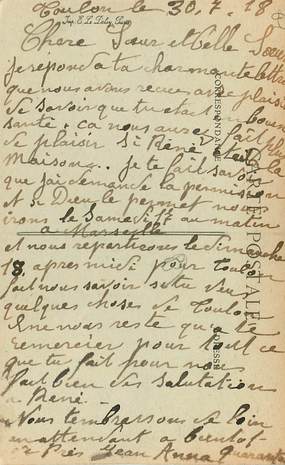 Toulon le 30.7.18
Imp. E. Le Deley, Paris
Chere Sœur et Belle Sœur
je repond a ta charmante lettre
que nous avons recue avec plaisir
de savoir que tu etait en bonne
santé. ça nous aurait fait plus
de plaisir si René etait la
Maison.. je te fait savoir
que j'ai demande la permission
et si Dieu le permet nous
irons le Samedi 17 au matin
a Marseille
et nous repartirons le dimanche
18 apres midi pour Toulon
fait nous savoir si tu veux
quelques chose de Toulon
Il ne nous reste qu'a te
remercier pour tout ce
que tu fait pour nous
fait bien des salutation
a René -
Nous t'embrassons de loin
en attendant a bientot
de Près Jean Anna
CORRESPONDANCE
CARTE POSTALE
ADRESSE